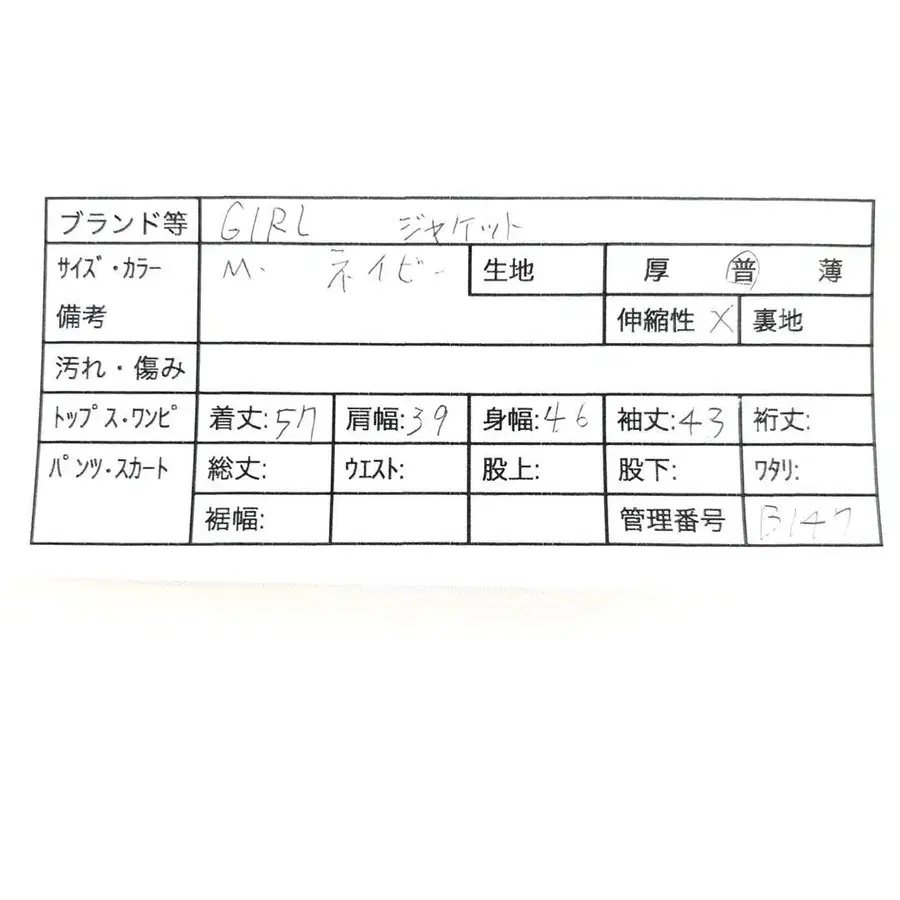 ブランド等 GIRL ジャケット
サイズ・カラー M. ネイビー 生地 厚 普 薄
備考 伸縮性 X 裏地
汚れ・傷み
トップス・ワンピ 着丈:57 肩幅:39 身幅:46 袖丈:43 裄丈:
パンツ・スカート 総丈: ウエスト: 股上: 股下: ワタリ:
裾幅: 管理番号 B147